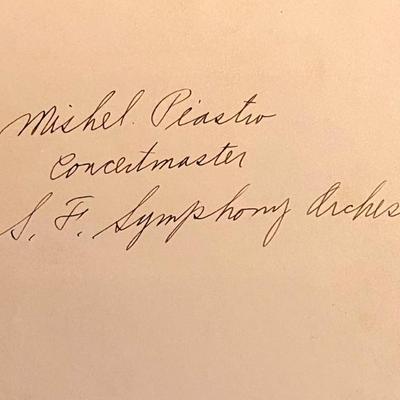 Mishel Piastro
Concertmaster
S. F. Symphony Orches